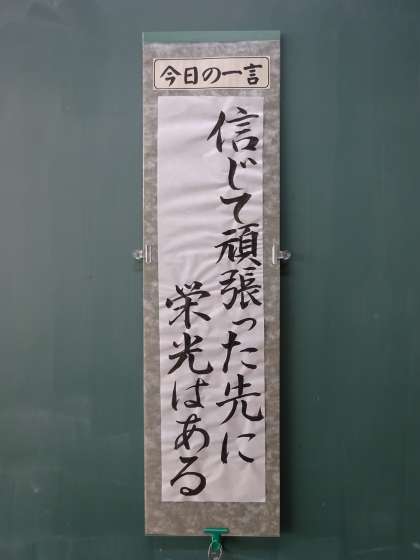 今日の一言
信じて頑張った先に
栄光はある